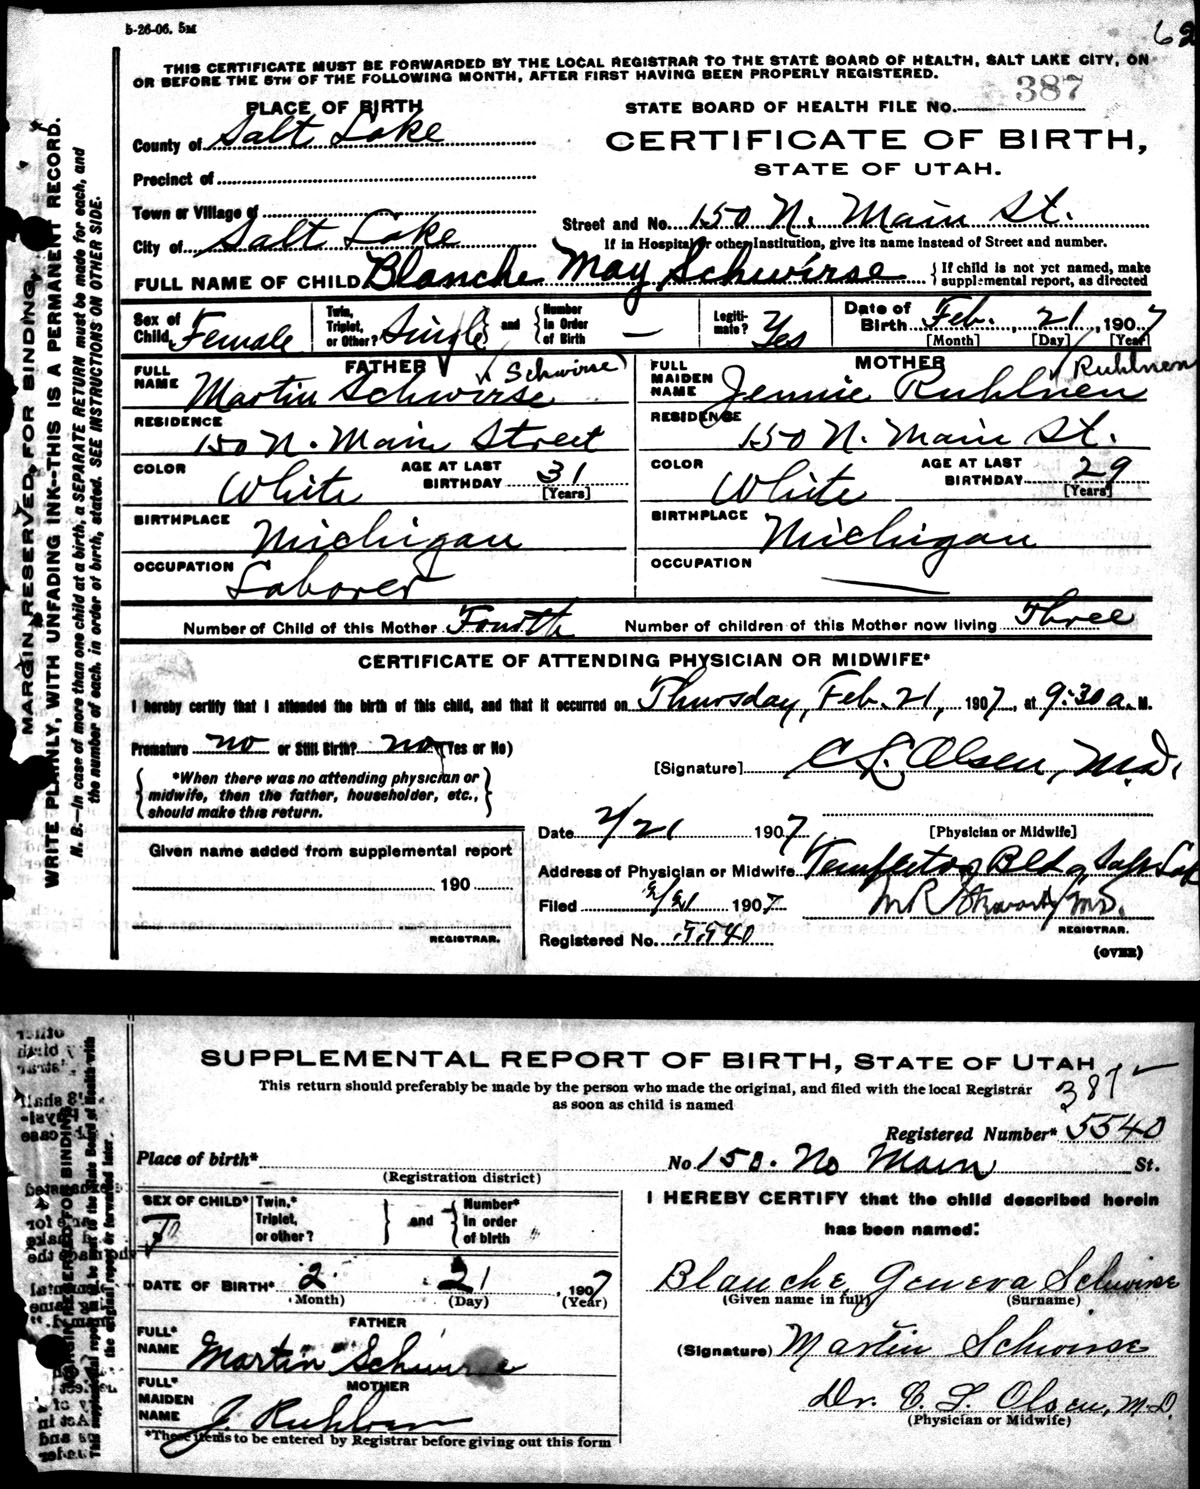 5-26-06. 5M
62
THIS CERTIFICATE MUST BE FORWARDED BY THE LOCAL REGISTRAR TO THE STATE BOARD OF HEALTH, SALT LAKE CITY, ON
OR BEFORE THE 5TH OF THE FOLLOWING MONTH, AFTER FIRST HAVING BEEN PROPERLY REGISTERED.
MARGIN RESERVED FOR BINDING.
WRITE PLAINLY, WITH UNFADING INK--THIS IS A PERMANENT RECORD.
N. B.—In case of more than one child at a birth, a SEPARATE RETURN must be made for each, and
the number of each, in order of birth, stated. SEE INSTRUCTIONS ON OTHER SIDE.
PLACE OF BIRTH
STATE BOARD OF HEALTH FILE NO. 387
County of Salt Lake
CERTIFICATE OF BIRTH,
STATE OF UTAH.
Precinct of
Town or Village of
Street and No. 150 N. Main St.
City of Salt Lake
If in Hospital or other Institution, give its name instead of Street and number.
FULL NAME OF CHILD Blanche May Schwirse
{ If child is not yet named, make
supplemental report, as directed
Sex of Child. Female
Twin, Triplet, or Other? Single
and
Number in Order of Birth —
Legitimate? Yes
Date of Birth Feb. , 21 , 1907
[Month] [Day] [Year]
FATHER
MOTHER
Schwirse
Ruhlnen
FULL NAME Martin Schwirse
FULL MAIDEN NAME Jennie Ruhlnen
RESIDENCE 150 N. Main Street
RESIDENCE 150 N. Main St.
COLOR White AGE AT LAST BIRTHDAY 31 [Years]
COLOR White AGE AT LAST BIRTHDAY 29 [Years]
BIRTHPLACE Michigan
BIRTHPLACE Michigan
OCCUPATION Laborer
OCCUPATION —
Number of Child of this Mother Fourth Number of children of this Mother now living Three
CERTIFICATE OF ATTENDING PHYSICIAN OR MIDWIFE*
I hereby certify that I attended the birth of this child, and that it occurred on Thursday, Feb. 21, 1907, at 9:30 a. M.
Premature no or Still Birth? no (Yes or No)
[Signature] C L Olsen, M.D.
{ *When there was no attending physician or
midwife, then the father, householder, etc.,
should make this return. }
Date 2/21 1907
[Physician or Midwife]
Given name added from supplemental report
Address of Physician or Midwife Templeton Bldg Salt Lak
190
Filed 2/21 1907
REGISTRAR.
REGISTRAR.
Registered No. 5540
(OVER)
SUPPLEMENTAL REPORT OF BIRTH, STATE OF UTAH
This return should preferably be made by the person who made the original, and filed with the local Registrar
as soon as child is named
387
Registered Number* 5540
Place of birth*
(Registration district)
No. 150. No Main St.
SEX OF CHILD* F
Twin,* Triplet, or other?
and
Number* in order of birth
I HEREBY CERTIFY that the child described herein
has been named:
DATE OF BIRTH* 2 21 , 1907
(Month) (Day) (Year)
Blanche Geneva Schwirse
(Given name in full) (Surname)
FATHER
FULL* NAME Martin Schwirse
(Signature) Martin Schwirse
MOTHER
FULL* MAIDEN NAME J.
Dr. C. L. Olsen, M.D.
(Physician or Midwife)
*These items to be entered by Registrar before giving out this form